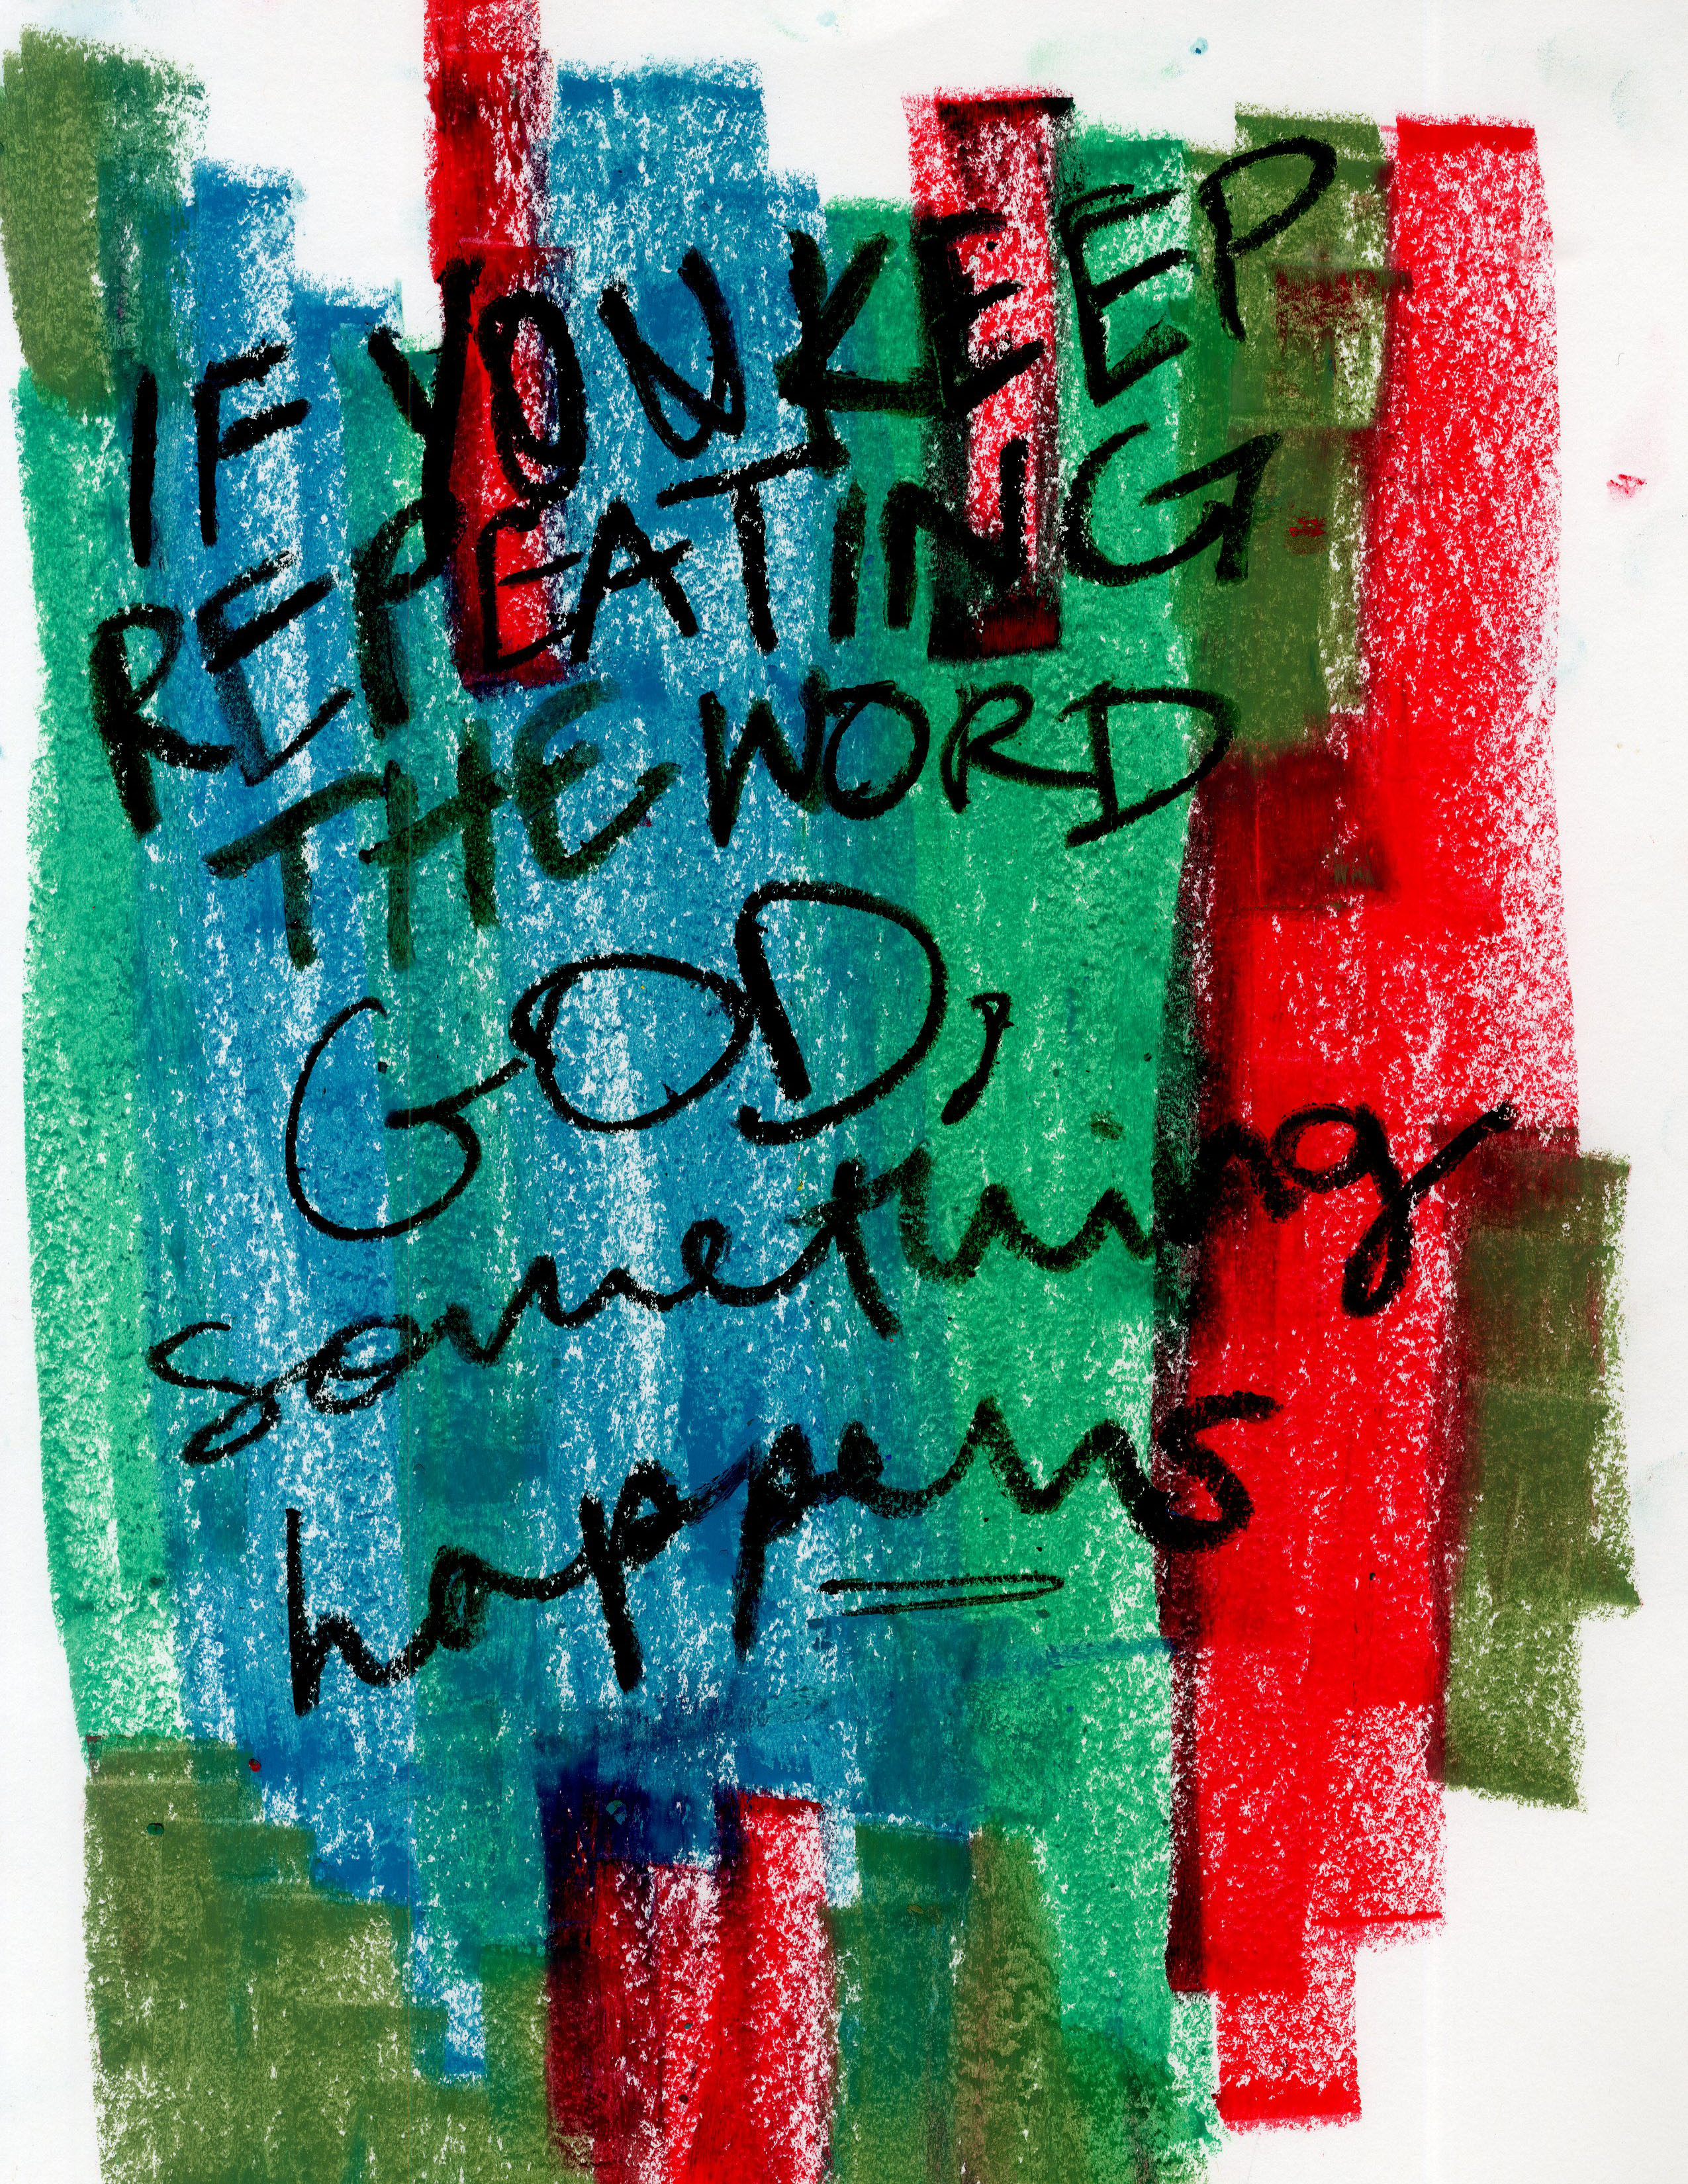 IF YOU KEEP
REPEATING
THE WORD
GOD,
something
happens